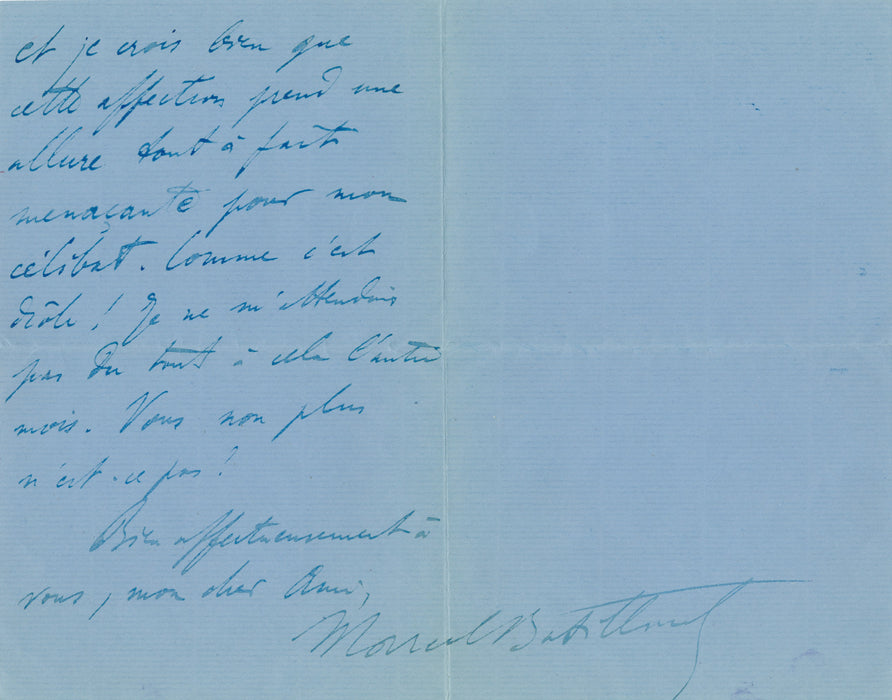 et je crois bien que
cette affection prend une
allure tout à fait
menaçante pour mon
célibat. Comme c'est
drôle ! Je ne m'attendais
pas du tout à cela l'autre
mois. Vous non plus
n'est-ce pas !
Bien affectueusement à
vous, mon cher Ami,
Marcel Batilliat